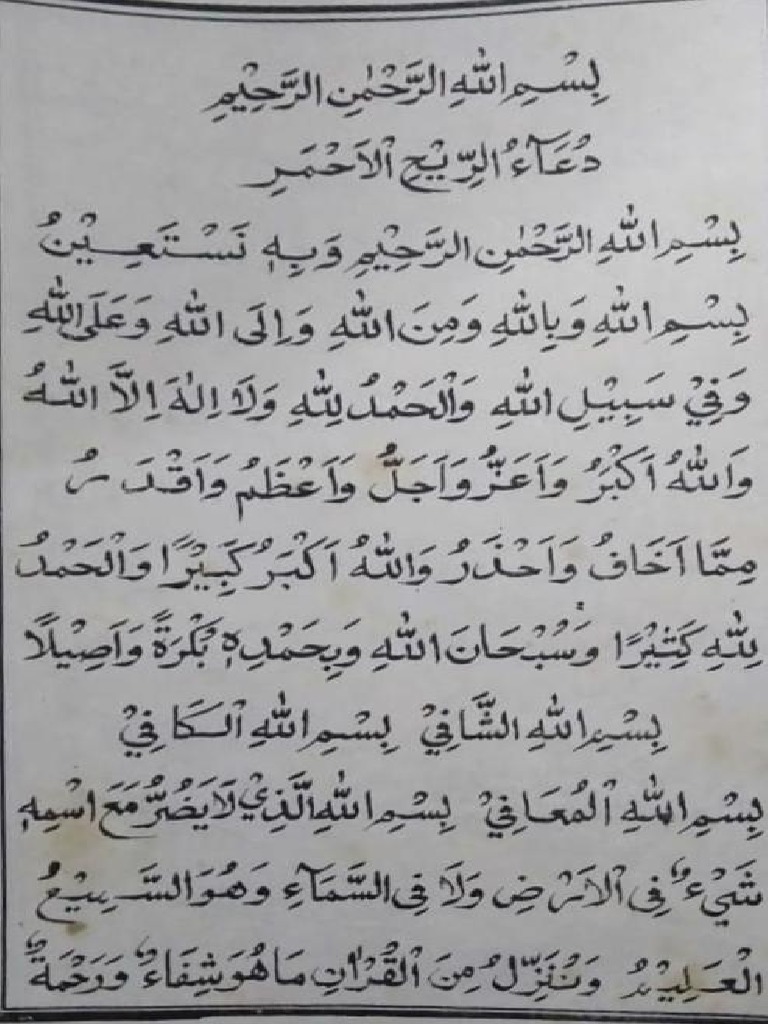 بِسْمِ اللّٰهِ الرَّحْمٰنِ الرَّحِيْمِ
دُعَآءُ الرِّيْحِ الْاَحْمَرِ
بِسْمِ اللّٰهِ الرَّحْمٰنِ الرَّحِيْمِ وَبِهٖ نَسْتَعِيْنُ
بِسْمِ اللّٰهِ وَبِاللّٰهِ وَمِنَ اللّٰهِ وَاِلَى اللّٰهِ وَعَلَى اللّٰهِ
وَفِيْ سَبِيْلِ اللّٰهِ وَالْحَمْدُ لِلّٰهِ وَلَا اِلٰهَ اِلَّا اللّٰهُ
وَاللّٰهُ اَكْبَرُ وَاَعَزُّ وَاَجَلُّ وَاَعْظَمُ وَاَقْدَرُ
مِمَّا اَخَافُ وَاَحْذَرُ وَاللّٰهُ اَكْبَرُ كَبِيْرًا وَالْحَمْدُ
لِلّٰهِ كَثِيْرًا وَسُبْحَانَ اللّٰهِ وَبِحَمْدِهٖ بُكْرَةً وَاَصِيْلًا
بِسْمِ اللّٰهِ الشَّافِيْ بِسْمِ اللّٰهِ الْكَافِيْ
بِسْمِ اللّٰهِ الْمُعَافِيْ بِسْمِ اللّٰهِ الَّذِيْ لَا يَضُرُّ مَعَ اسْمِهٖ
شَيْءٌ فِى الْاَرْضِ وَلَا فِى السَّمَآءِ وَهُوَ السَّمِيْعُ
الْعَلِيْمُ وَنُنَزِّلُ مِنَ الْقُرْاٰنِ مَا هُوَ شِفَاءٌ وَرَحْمَةٌ